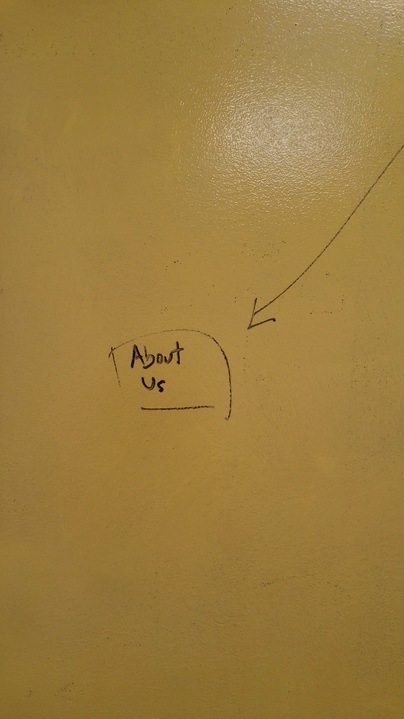 About
Us